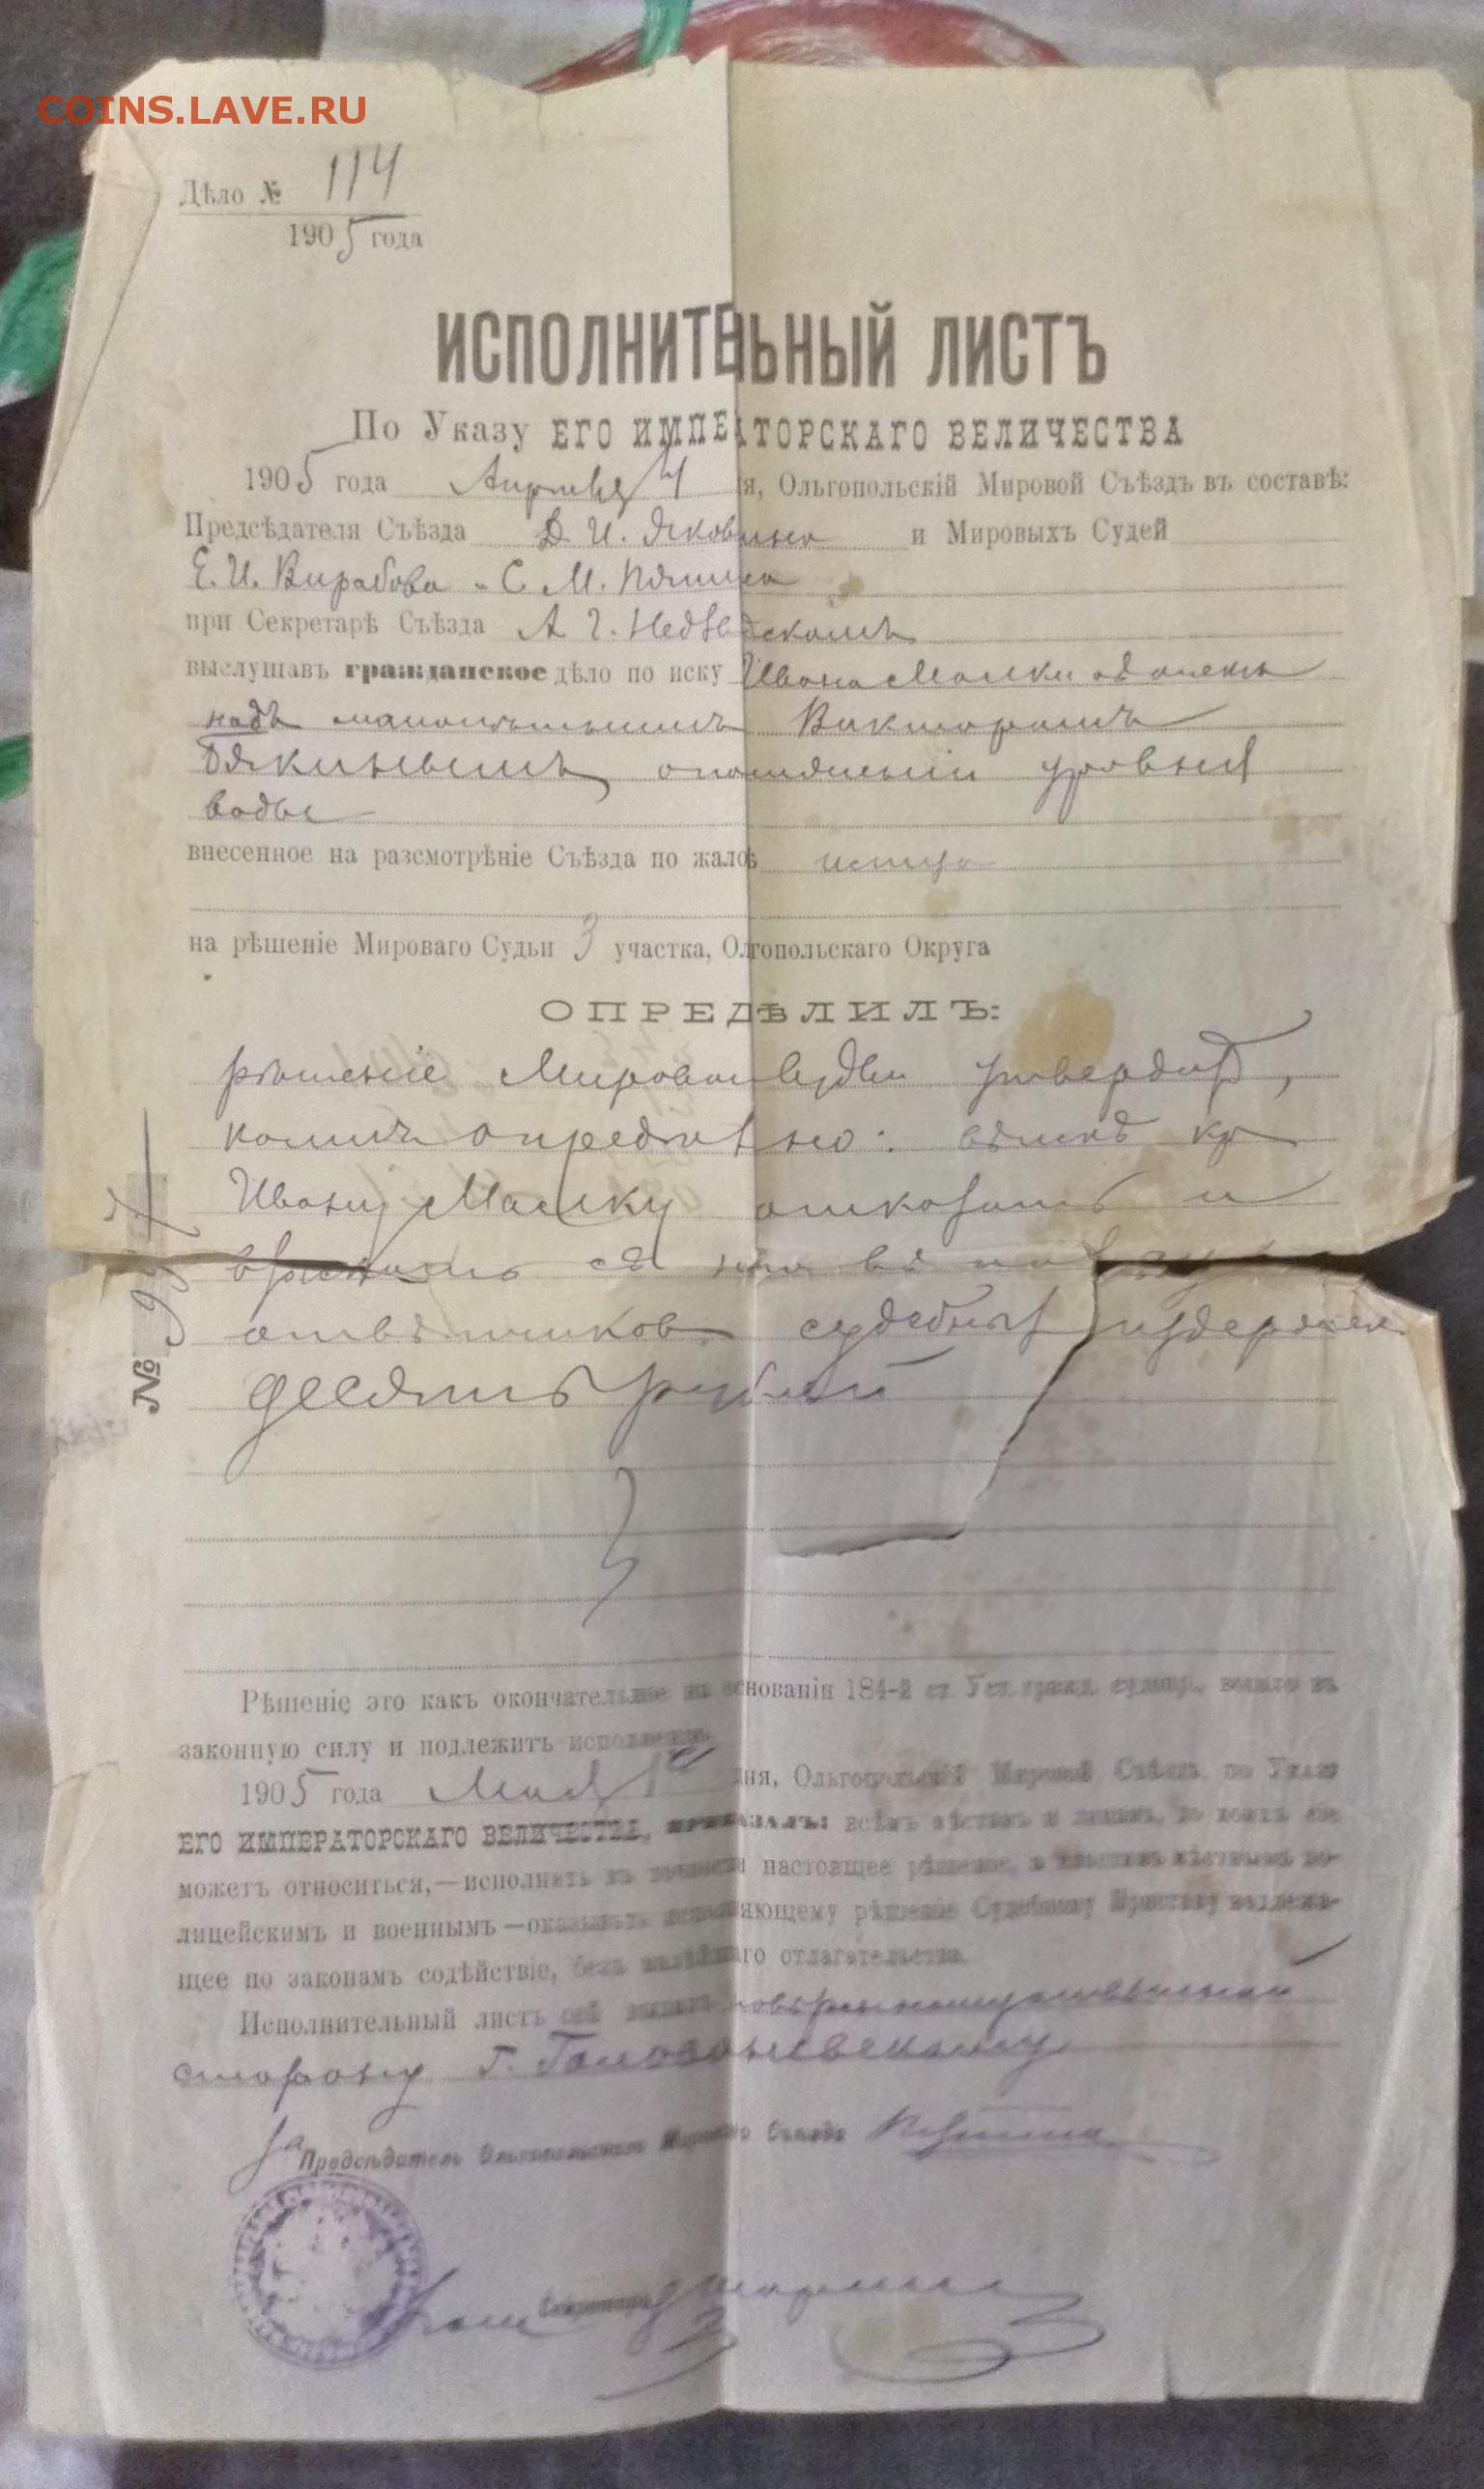 COINS.LAVE.RU
Дѣло № 114
1905 года
ИСПОЛНИТЕЛЬНЫЙ ЛИСТЪ
По Указу ЕГО ИМПЕРАТОРСКАГО ВЕЛИЧЕСТВА
1905 года Апрѣля 4 я, Ольгопольскій Мировой Съѣздъ въ составѣ:
Предсѣдателя Съѣзда Д. И. и Мировыхъ Судей
Е. И. Вирабова и С. М.
при Секретарѣ Съѣзда А
выслушавъ гражданское дѣло по иску Ивана
надъ Викторомъ
уровня
воды
внесенное на разсмотрѣніе Съѣзда по жалобѣ истца
на рѣшеніе Мироваго Судьи 3 участка, Олгопольскаго Округа
ОПРЕДѢЛИЛЪ:
рѣшеніе Мирового Судьи утвердить,
коимъ опредѣлено: въ искѣ кр
Ивану отказать и
взыскать съ него въ пользу
отвѣтчиков судебных издержек
десять рублей
№
Рѣшеніе это какъ окончательное на основаніи 184-й ст. Уст. гражд. судопр. вошло въ
законную силу и подлежитъ исполненію.
1905 года Мая дня, Ольгопольскій Мировой Съѣздъ по Указу
ЕГО ИМПЕРАТОРСКАГО ВЕЛИЧЕСТВА, ПРИКАЗАЛЪ: всѣмъ мѣстамъ и лицамъ, до коихъ сіе
можетъ относиться,—исполнить въ точности настоящее рѣшеніе, а властямъ мѣстнымъ по-
лицейскимъ и военнымъ—оказывать исполняющему рѣшеніе Судебному Приставу надлежа-
щее по законамъ содѣйствіе, безъ малѣйшаго отлагательства.
Исполнительный листъ сей выданъ
г.
За Предсѣдатель Ольгопольскаго Мирового Съѣзда
Секретарь